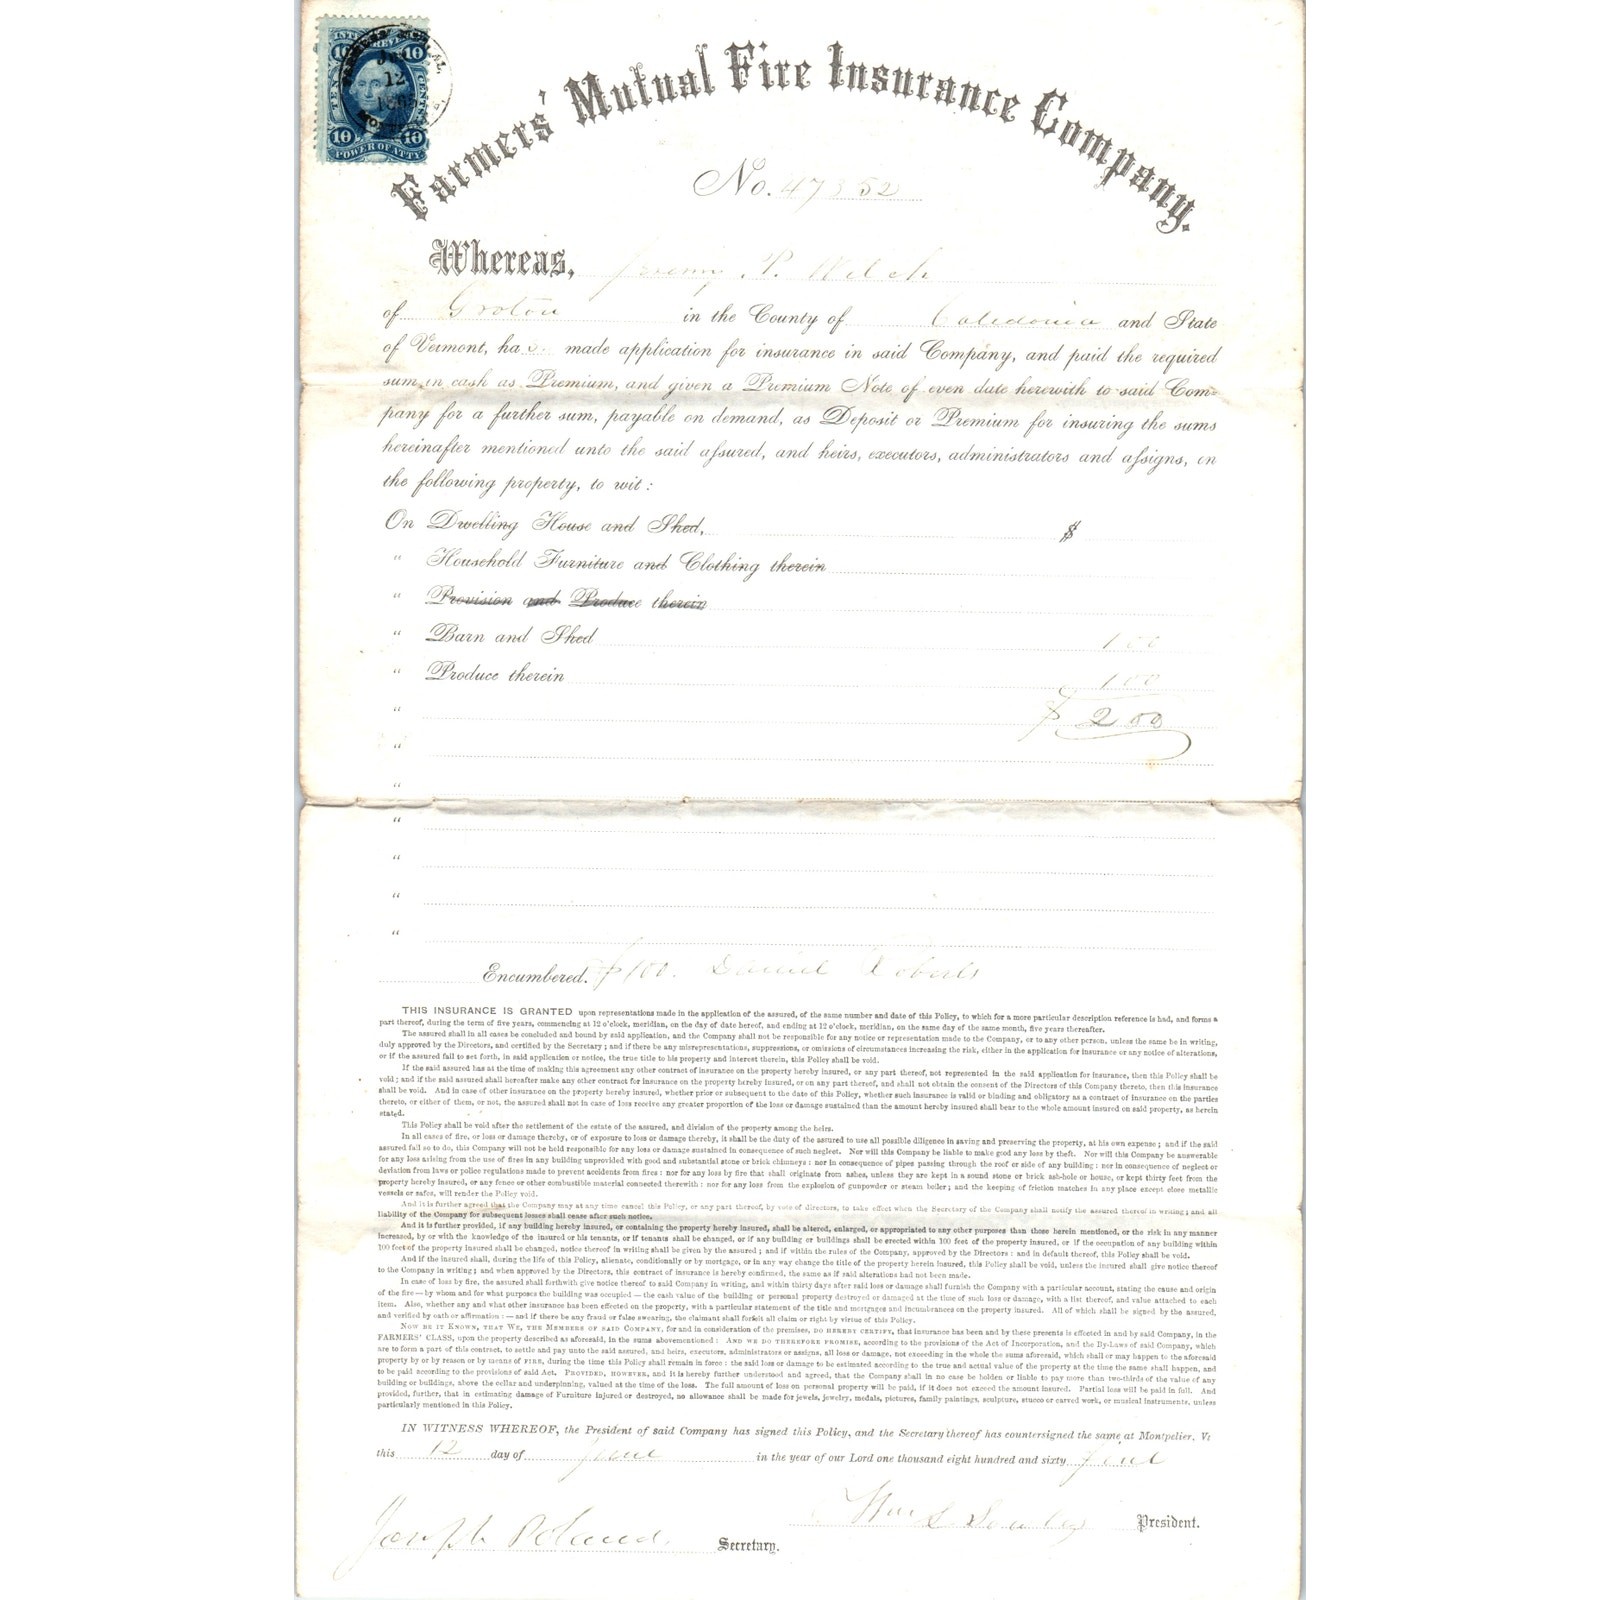 INTER. REVENUE
10 10
TEN CENTS
JUN
12
10 10
POWER OF ATTY
Farmers' Mutual Fire Insurance Company.
No. 47352
Whereas, P. Welch
of Groton in the County of Caledonia and State
of Vermont, has made application for insurance in said Company, and paid the required
sum in cash as Premium, and given a Premium Note of even date herewith to said Com=
pany for a further sum, payable on demand, as Deposit or Premium for insuring the sums
hereinafter mentioned unto the said assured, and heirs, executors, administrators and assigns, on
the following property, to wit:
On Dwelling House and Shed, $
" Household Furniture and Clothing therein
" Provision and Produce therein
" Barn and Shed 100
" Produce therein 100
" $ 200
"
"
"
"
"
"
Encumbered. $100. Daniel Roberts
THIS INSURANCE IS GRANTED upon representations made in the application of the assured, of the same number and date of this Policy, to which for a more particular description reference is had, and forms a
part thereof, during the term of five years, commencing at 12 o'clock, meridian, on the day of date hereof, and ending at 12 o'clock, meridian, on the same day of the same month, five years thereafter.
The assured shall in all cases be concluded and bound by said application, and the Company shall not be responsible for any notice or representation made to the Company, or to any other person, unless the same be in writing,
duly approved by the Directors, and certified by the Secretary; and if there be any misrepresentations, suppressions, or omissions of circumstances increasing the risk, either in the application for insurance or any notice of alterations,
or if the assured fail to set forth, in said application or notice, the true title to his property and interest therein, this Policy shall be void.
If the said assured has at the time of making this agreement any other contract of insurance on the property hereby insured, or any part thereof, not represented in the said application for insurance, then this Policy shall be
void; and if the said assured shall hereafter make any other contract for insurance on the property hereby insured, or on any part thereof, and shall not obtain the consent of the Directors of this Company thereto, then this insurance
shall be void. And in case of other insurance on the property hereby insured, whether prior or subsequent to the date of this Policy, whether such insurance is valid or binding and obligatory as a contract of insurance on the parties
thereto, or either of them, or not, the assured shall not in case of loss receive any greater proportion of the loss or damage sustained than the amount hereby insured shall bear to the whole amount insured on said property, as herein
stated.
This Policy shall be void after the settlement of the estate of the assured, and division of the property among the heirs.
In all cases of fire, or loss or damage thereby, or of exposure to loss or damage thereby, it shall be the duty of the assured to use all possible diligence in saving and preserving the property, at his own expense; and if the said
assured fail so to do, this Company will not be held responsible for any loss or damage sustained in consequence of such neglect. Nor will this Company be liable to make good any loss by theft. Nor will this Company be answerable
for any loss arising from the use of fires in any building unprovided with good and substantial stone or brick chimneys: nor in consequence of pipes passing through the roof or side of any building: nor in consequence of neglect or
deviation from laws or police regulations made to prevent accidents from fires: nor for any loss by fire that shall originate from ashes, unless they are kept in a sound stone or brick ash-hole or house, or kept thirty feet from the
property hereby insured, or any fence or other combustible material connected therewith: nor for any loss from the explosion of gunpowder or steam boiler; and the keeping of friction matches in any place except close metallic
vessels or safes, will render the Policy void.
And it is further agreed that the Company may at any time cancel this Policy, or any part thereof, by vote of directors, to take effect when the Secretary of the Company shall notify the assured thereof in writing; and all
liability of the Company for subsequent losses shall cease after such notice.
And it is further provided, if any building hereby insured, or containing the property hereby insured, shall be altered, enlarged, or appropriated to any other purposes than those herein mentioned, or the risk in any manner
increased, by or with the knowledge of the insured or his tenants, or if tenants shall be changed, or if any building or buildings shall be erected within 100 feet of the property insured, or if the occupation of any building within
100 feet of the property insured shall be changed, notice thereof in writing shall be given by the assured; and if within the rules of the Company, approved by the Directors: and in default thereof, this Policy shall be void.
And if the insured shall, during the life of this Policy, alienate, conditionally or by mortgage, or in any way change the title of the property herein insured, this Policy shall be void, unless the insured shall give notice thereof
to the Company in writing; and when approved by the Directors, this contract of insurance is hereby confirmed, the same as if said alterations had not been made.
In case of loss by fire, the assured shall forthwith give notice thereof to said Company in writing, and within thirty days after said loss or damage shall furnish the Company with a particular account, stating the cause and origin
of the fire—by whom and for what purposes the building was occupied—the cash value of the building or personal property destroyed or damaged at the time of such loss or damage, with a list thereof, and value attached to each
item. Also, whether any and what other insurance has been effected on the property, with a particular statement of the title and mortgages and incumbrances on the property insured. All of which shall be signed by the assured,
and verified by oath or affirmation:—and if there be any fraud or false swearing, the claimant shall forfeit all claim or right by virtue of this Policy.
NOW BE IT KNOWN, THAT WE, THE MEMBERS OF SAID COMPANY, for and in consideration of the premises, DO HEREBY CERTIFY, that insurance has been and by these presents is effected in and by said Company, in the
FARMERS' CLASS, upon the property described as aforesaid, in the sums abovementioned: AND WE DO THEREFORE PROMISE, according to the provisions of the Act of Incorporation, and the By-Laws of said Company, which
are to form a part of this contract, to settle and pay unto the said assured, and heirs, executors, administrators or assigns, all loss or damage, not exceeding in the whole the sums aforesaid, which shall or may happen to the aforesaid
property by or by reason or by means of FIRE, during the time this Policy shall remain in force: the said loss or damage to be estimated according to the true and actual value of the property at the time the same shall happen, and
to be paid according to the provisions of said Act. PROVIDED, HOWEVER, and it is hereby further understood and agreed, that the Company shall in no case be holden or liable to pay more than two-thirds of the value of any
building or buildings, above the cellar and underpinning, valued at the time of the loss. The full amount of loss on personal property will be paid, if it does not exceed the amount insured. Partial loss will be paid in full. And
provided, further, that in estimating damage of Furniture injured or destroyed, no allowance shall be made for jewels, jewelry, medals, pictures, family paintings, sculpture, stucco or carved work, or musical instruments, unless
particularly mentioned in this Policy.
IN WITNESS WHEREOF, the President of said Company has signed this Policy, and the Secretary thereof has countersigned the same at Montpelier, Vt
this 12 day of June in the year of our Lord one thousand eight hundred and sixty five
Wm President.
Joseph Poland, Secretary.